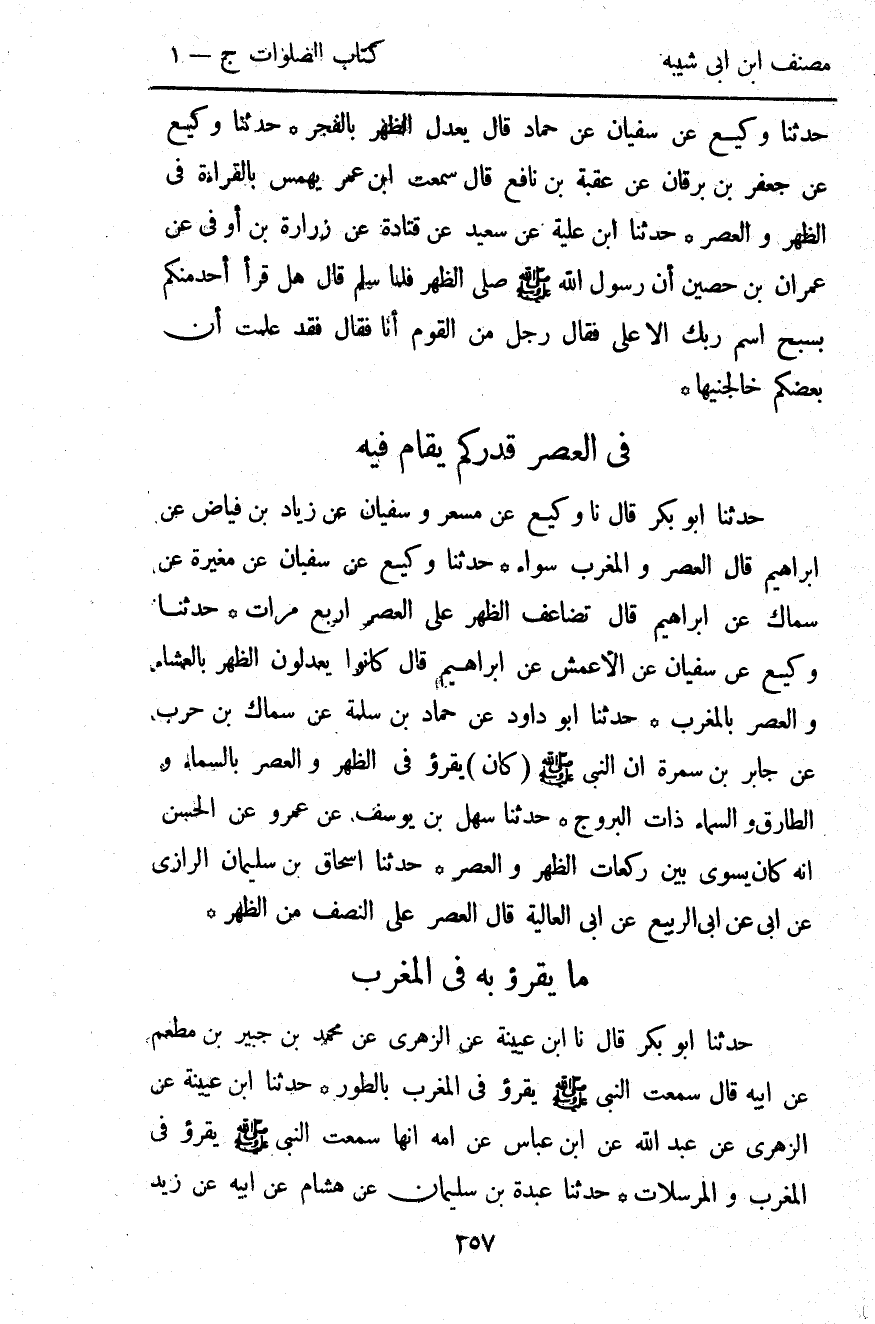 مصنف ابن ابى شيبه كتاب الصلوات ج — ١
حدثنا وكيع عن سفيان عن حماد قال يعدل الظهر بالفجر * حدثنا وكيع
عن جعفر بن برقان عن عقبة بن نافع قال سمعت ابن عمر يهمس بالقراءة فى
الظهر و العصر * حدثنا ابن علية عن سعيد عن قتادة عن زرارة بن أوفى عن
عمران بن حصين أن رسول الله ﷺ صلى الظهر فلما سلم قال هل قرأ أحدمنكم
بسبح اسم ربك الاعلى فقال رجل من القوم أنا فقال فقد علمت أن
بعضكم خالجنيها *
فى العصر قدركم يقام فيه
حدثنا ابو بكر قال نا وكيع عن مسعر و سفيان عن زياد بن فياض عن
ابراهيم قال العصر و المغرب سواء * حدثنا وكيع عن سفيان عن مغيرة عن
سماك عن ابراهيم قال تضاعف الظهر على العصر اربع مرات * حدثنا
وكيع عن سفيان عن الأعمش عن ابراهيم قال كانوا يعدلون الظهر بالعشاء
و العصر بالمغرب * حدثنا ابو داود عن حماد بن سلمة عن سماك بن حرب
عن جابر بن سمرة ان النبى ﷺ (كان) يقرؤ فى الظهر و العصر بالسماء و
الطارق و السماء ذات البروج * حدثنا سهل بن يوسف عن عمرو عن الحسن
انه كان يسوى بين ركعات الظهر و العصر * حدثنا اسحاق بن سليمان الرازى
عن ابى عن ابى الربيع عن ابى العالية قال العصر على النصف من الظهر *
ما يقرؤ به فى المغرب
حدثنا ابو بكر قال نا ابن عيينة عن الزهرى عن محمد بن جبير بن مطعم
عن ابيه قال سمعت النبى ﷺ يقرؤ فى المغرب بالطور * حدثنا ابن عيينة عن
الزهرى عن عبد الله عن ابن عباس عن امه انها سمعت النبى ﷺ يقرؤ فى
المغرب و المرسلات * حدثنا عبدة بن سليمان عن هشام عن ابيه عن زيد
٣٥٧